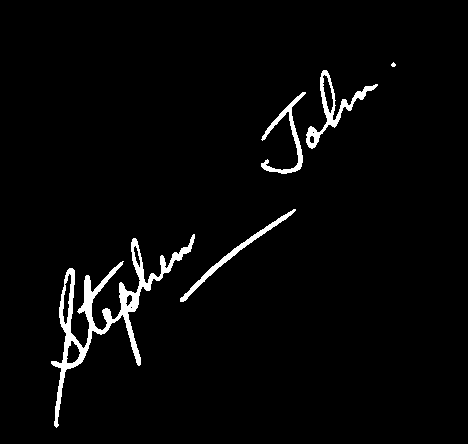 Stephen — John.